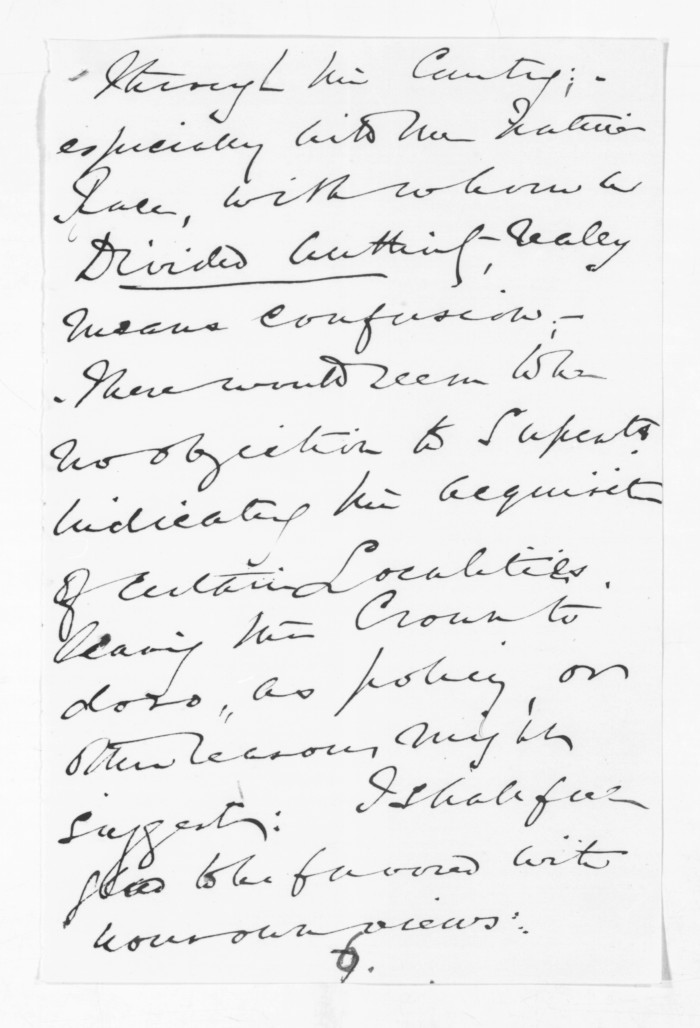 through the Country; -
especially with the Native
Race, with whom a
Divided Authority, really
means confusion, -
- There would seem to be
no objection to Supents
indicating the acquisit
of certain Localities,
leaving the Crown to
do so, as policy, or
other reasons might
suggest: I shall feel
glad to be favored with
your own views:
6.